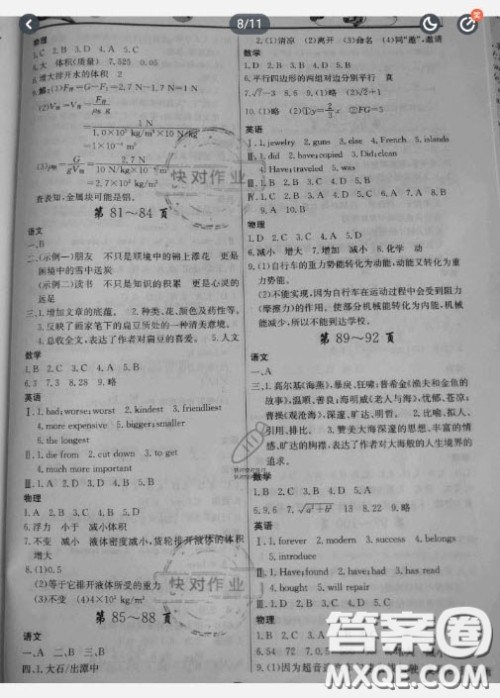 8/11
物理
1. C 2. B 3. D 4. A 5. C
6. 大 体积(质量) 7. 525 0.05
8. 增大排开水的体积 2
9. 解:(1)F浮=G-F₁=2.7 N-1.7 N=1 N.
(2)V物=V排=F浮/ρ水g
=1 N/(1.0×10³ kg/m³×10 N/kg)
=1×10⁻⁴ m³
(3)ρ物=G/gV物=2.7 N/(10 N/kg×10⁻⁴ m³)
=2.7×10³ kg/m³
查表知,金属块可能是铝.
第 81~84 页
语文
一、B
二、(示例一)朋友 不只是顺境中的锦上添花 更是
困境中的雪中送炭
(示例二)读书 不只是知识的积累 更是心灵的
远足
三、1. 增加文章的底蕴. 2. 花,颜色及药性等.
3. 反映了画家笔下的扁豆所处的一种清美意境.
4. 总收全文,表达了作者对扁豆的喜爱. 5. 人文
数学
1. B 2. B 3. C 4. C 5. A
6. 3 7. 3 8. 28 9. 略
英语
Ⅰ. 1. bad; worse; worst 2. kindest 3. friendliest
4. more expensive 5. bigger; smaller
6. the longest
Ⅱ. 1. die from 2. cut down 3. to get
4. much more important
Ⅲ. 1. D 2. C 3. D 4. A 5. B
物理
1. A 2. D 3. C 4. D 5. B
6. 浮力 小于 减小体积
7. 不变 减小 液体密度减小,货轮排开液体的体积
增大
8. (1)0.5
(2)等于它排开液体所受的重力
(3)不变 (4)4×10³ kg/m³
第 85~88 页
语文
一、A 二、B 三、B
四、1. 大石/出潭中
2. (1)清凉 (2)离开 (3)命名 (4)同“邀”,邀请
数学
1. D 2. D 3. A 4. B 5. B
6. 平行四边形的两组对边分别平行 真
7. √7-3 8. 6 9. (1)略 (2)√2+1
10. (1)略 (2)①y=2/3x ②FG=3
英语
Ⅰ. 1. jewelry 2. guns 3. else 4. French 5. islands
Ⅱ. 1. did 2. have; copied 3. Did; clean
4. Have; traveled 5. was
Ⅲ. 1. B 2. D 3. C 4. A 5. C 6. A 7. B 8. C
9. A 10. B
物理
1. D 2. A 3. C 4. D 5. C
6. 减小 增大 7. 增加 减小 8. 化学 动
9. (1)自行车的重力势能转化为动能,动能又转化为重
力势能.
(2)不能实现,因为自行车在运动过程中会受到阻力
(摩擦力)的作用,使部分机械能转化为内能,机械
能减小,所以不能到达学校.
第 89~92 页
语文
一、A
三、1. 高尔基(海燕),暴戾、狂啸;普希金(渔夫和金鱼的
故事),温顺、善良;海明威(老人与海),忧郁、苍凉;
曹操(观沧海),深邃、旷达、明哲. 2. 比喻、拟人、
引用、排比. 3. 赞美大海深邃的思想、丰富的
情感、旷达的胸襟,表达了作者对大海般的人生境界的
追求.
数学
1. B 2. A 3. C 4. D 5. B
6. 9.6 7. √(a²+b²) 13 8. 22 9. 略
英语
Ⅰ. 1. forever 2. modern 3. success 4. belongs
5. introduce
Ⅱ. 1. Have; found 2. have had 4. has read
5. have been
Ⅲ. 1. C
物理
1. C 2. D
6. 54 72
9. (1)因为超音
快对作业
快对作业
答案圈
MXQE.COM